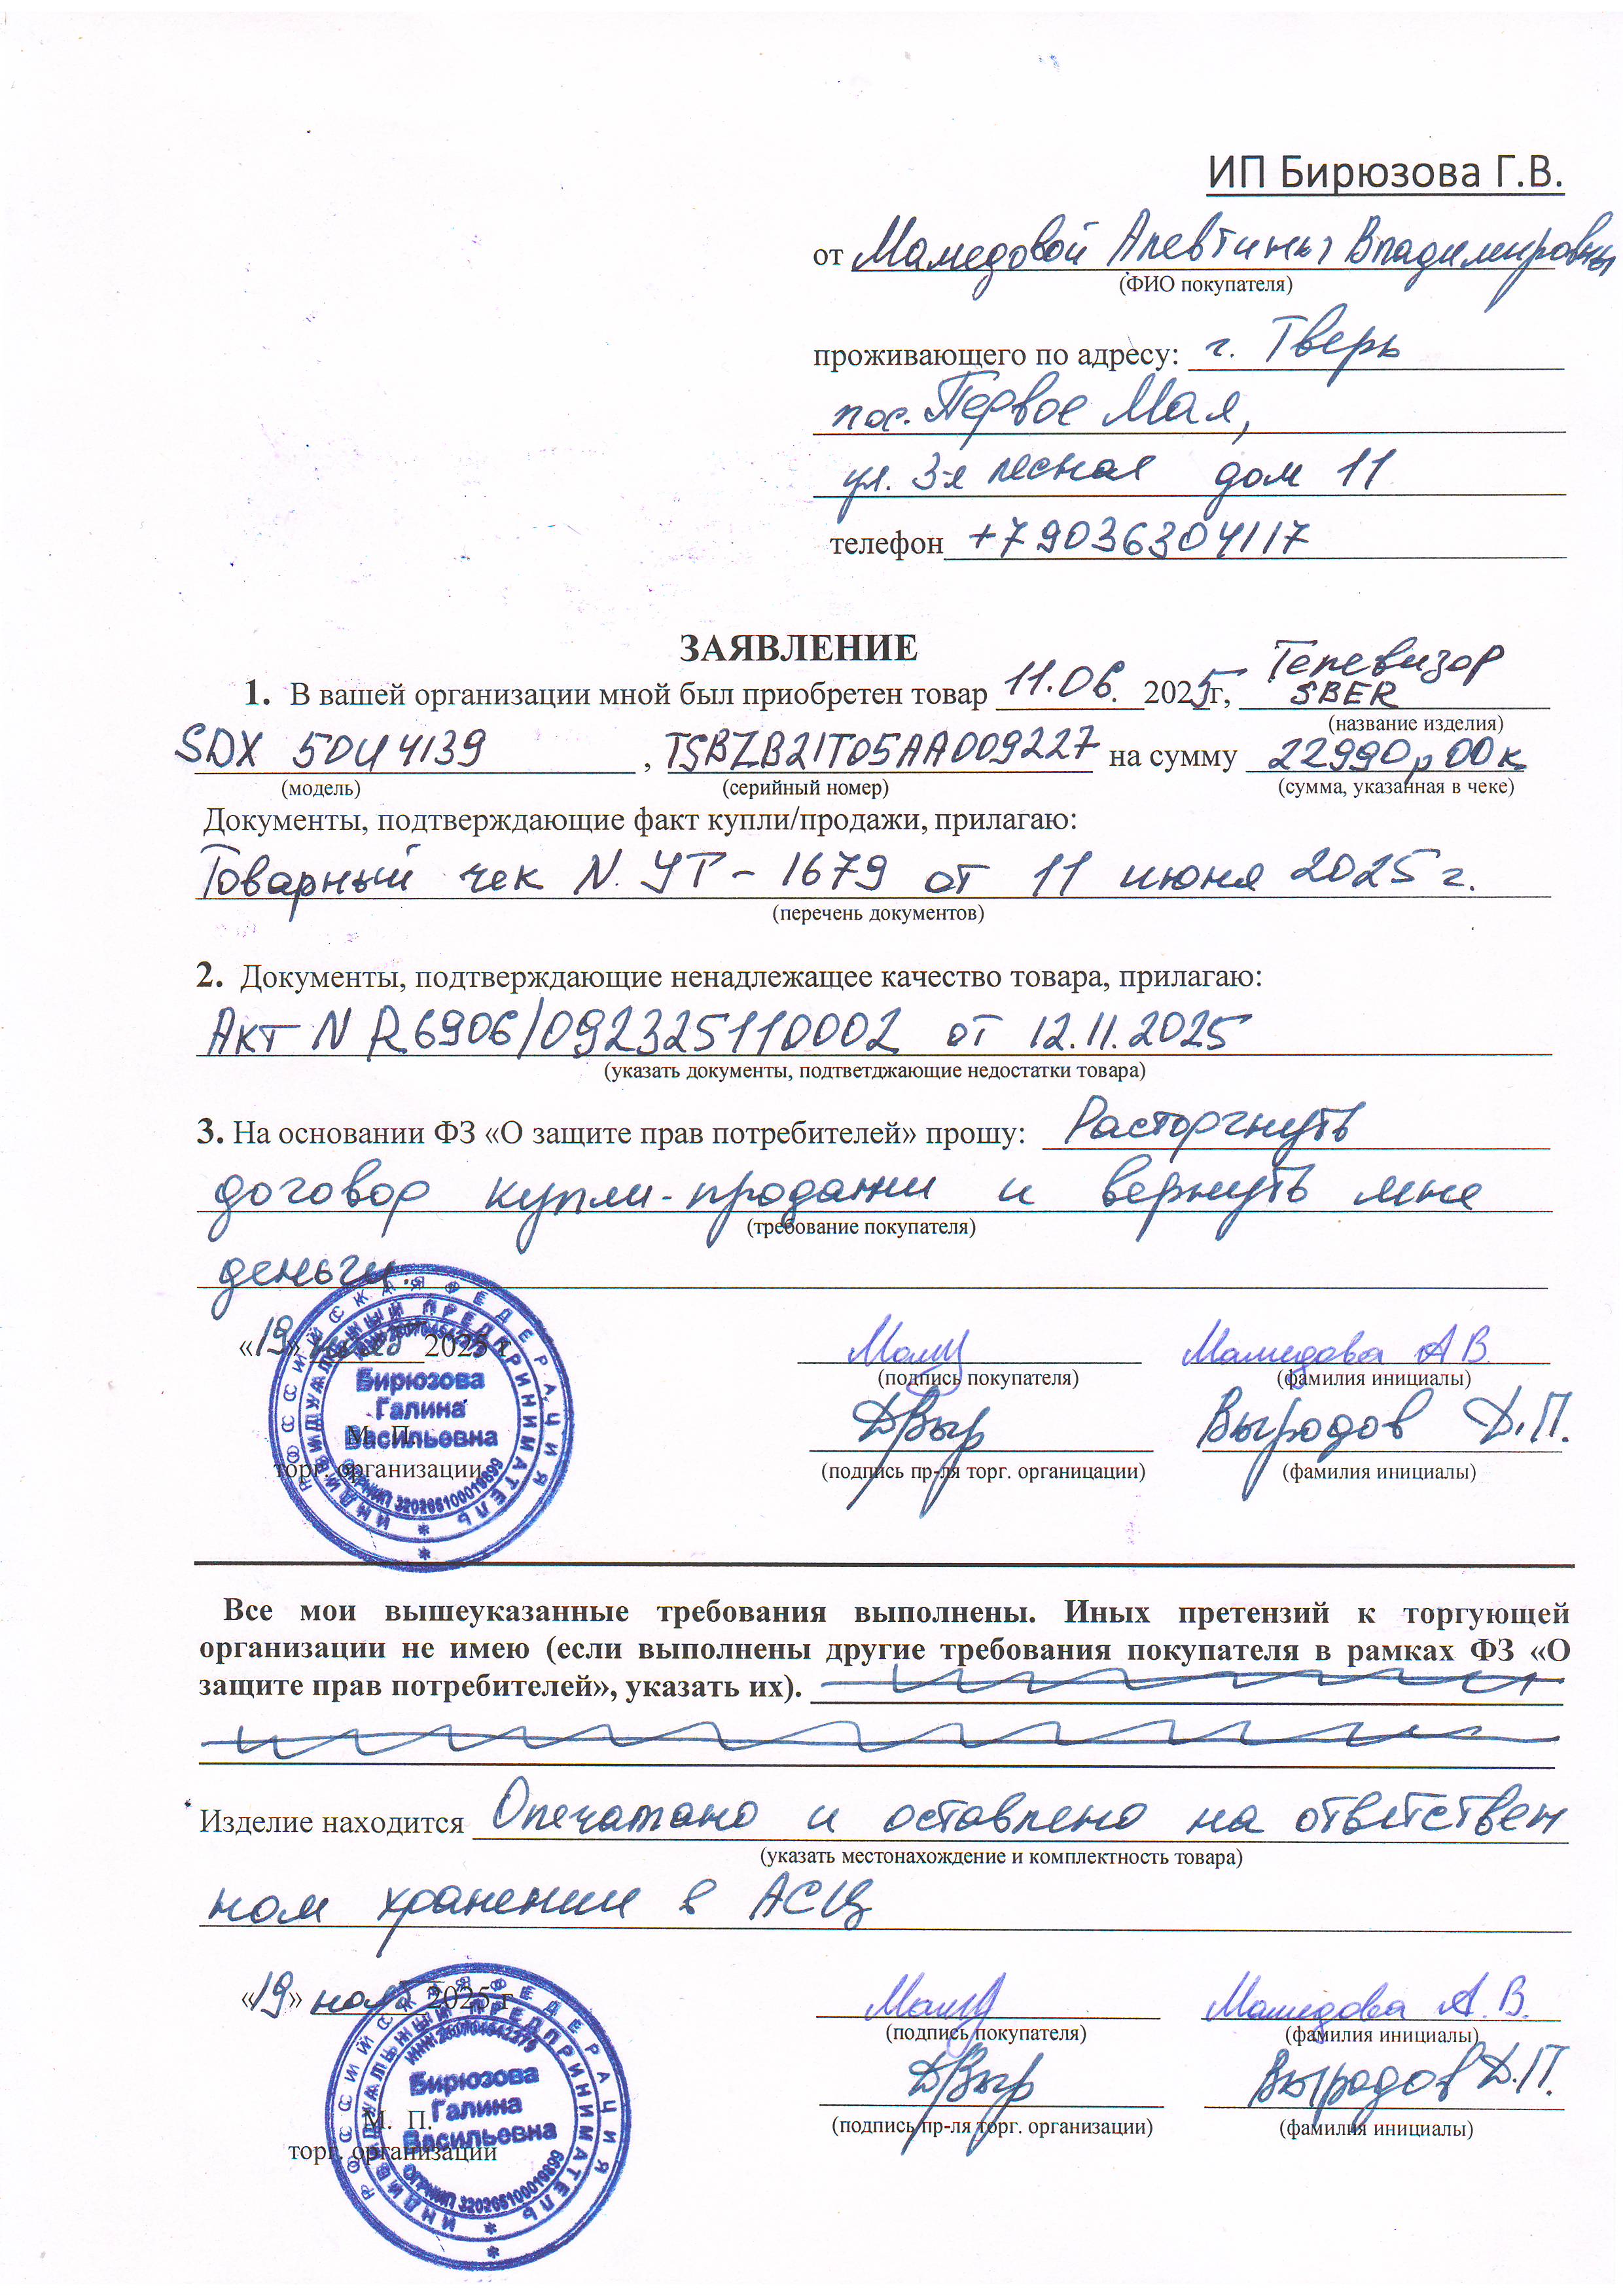 ИП Бирюзова Г.В.
от Мамедовой Алевтины Владимировны
(ФИО покупателя)
проживающего по адресу: г. Тверь
пос. Первое Мая,
ул. 3-я лесная дом 11
телефон +79036304117
ЗАЯВЛЕНИЕ
1. В вашей организации мной был приобретен товар 11.06. 2025г, Телевизор SBER
(название изделия)
SDX 50U4139, TSBZB21T05AA009227 на сумму 22990р00к
(модель) (серийный номер) (сумма, указанная в чеке)
Документы, подтверждающие факт купли/продажи, прилагаю:
Товарный чек N. УТ-1679 от 11 июня 2025г.
(перечень документов)
2. Документы, подтверждающие ненадлежащее качество товара, прилагаю:
Акт N R6906/092325110002 от 12.11.2025
(указать документы, подтветджающие недостатки товара)
3. На основании ФЗ «О защите прав потребителей» прошу: Расторгнуть
договор купли-продажи и вернуть мне
(требование покупателя)
деньги.
«19» 2025 г
Мамедова А В.
(подпись покупателя) (фамилия инициалы)
Выродов Д.П.
(подпись пр-ля торг. органицации) (фамилия инициалы)
М. П.
торг. организации
РОССИЙСКАЯ ФЕДЕРАЦИЯ
ИНДИВИДУАЛЬНЫЙ ПРЕДПРИНИМАТЕЛЬ
Бирюзова
Галина
Васильевна
Все мои вышеуказанные требования выполнены. Иных претензий к торгующей
организации не имею (если выполнены другие требования покупателя в рамках ФЗ «О
защите прав потребителей», указать их).
Изделие находится Опечатано и оставлено на ответствен
(указать местонахождение и комплектность товара)
ном хранении в АСЦ
«19» 2025 г
Мамедова А. В.
(подпись покупателя) (фамилия инициалы)
Выродов Д.П.
(подпись пр-ля торг. организации) (фамилия инициалы)
М. П.
торг. организации
РОССИЙСКАЯ ФЕДЕРАЦИЯ
ИНДИВИДУАЛЬНЫЙ ПРЕДПРИНИМАТЕЛЬ
Бирюзова
Галина
Васильевна